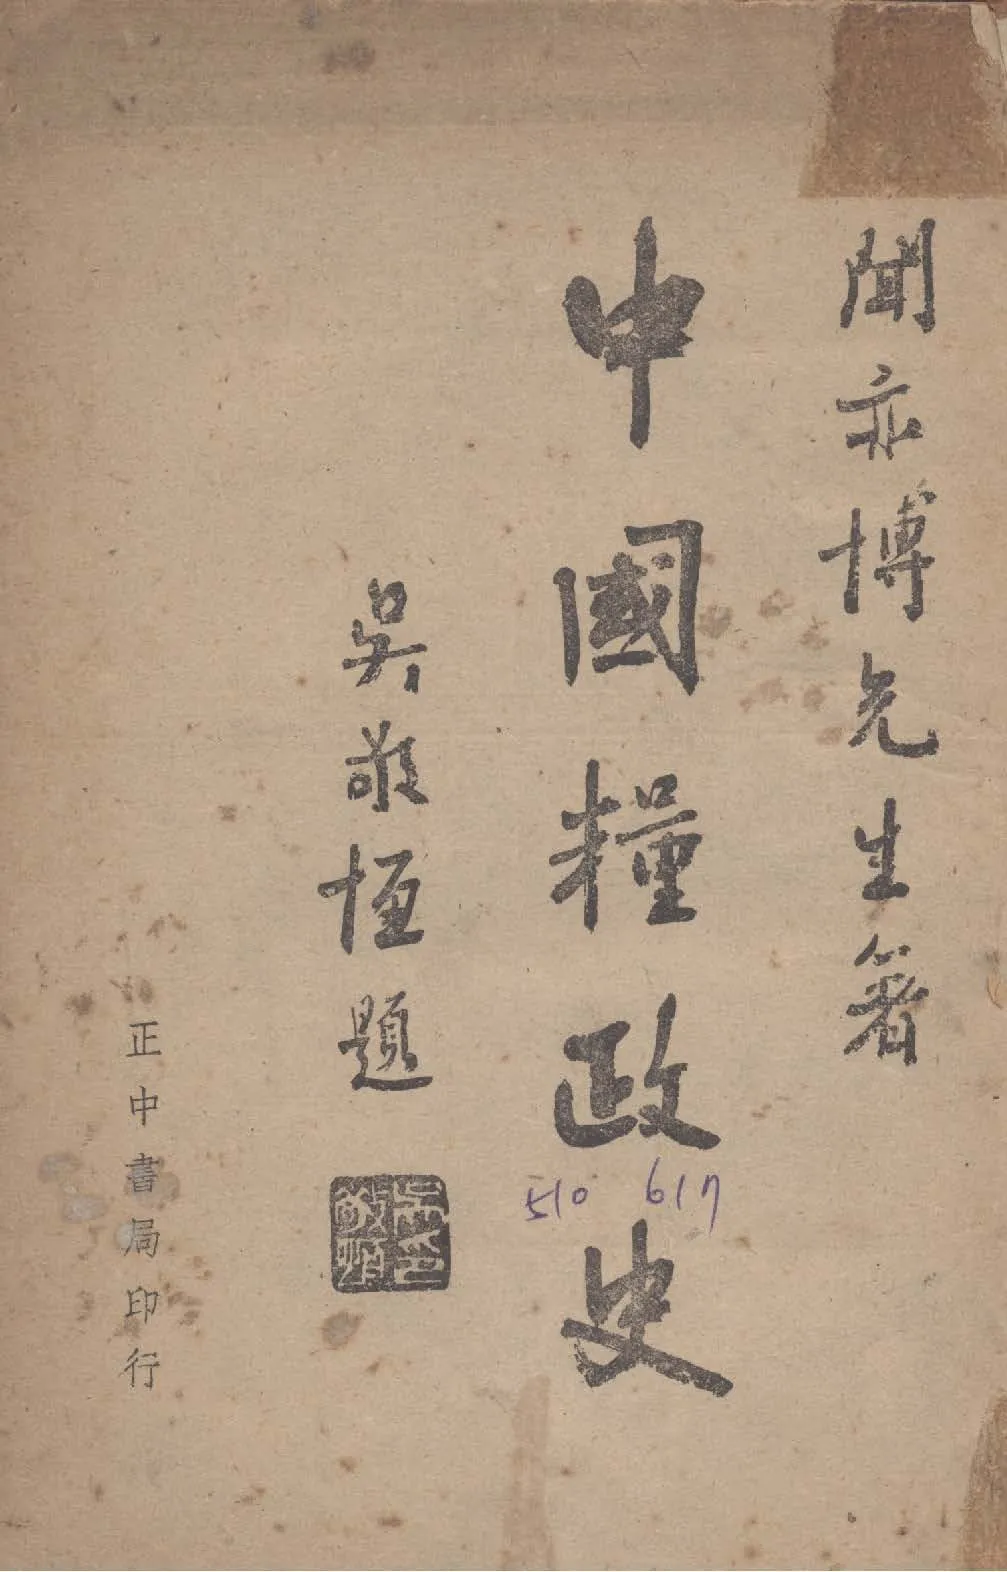 聞亦博先生著
中國糧政史
510 617
吳敬恆題
正中書局印行